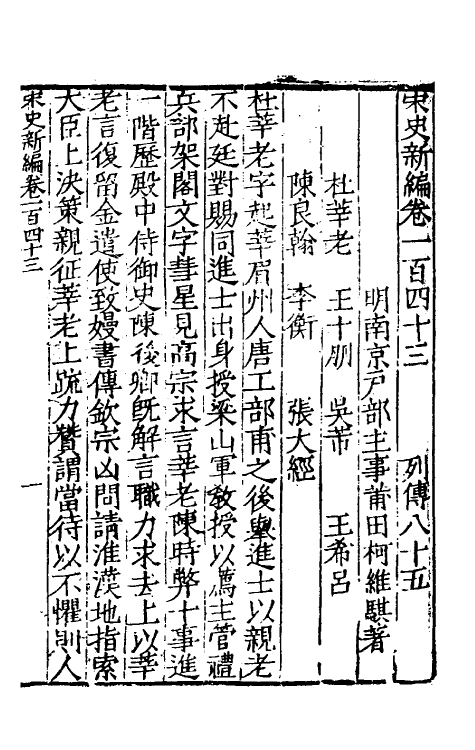 宋史新編卷一百四十三 列傳八十五
明南京戸部主事莆田柯維騏著
杜莘老 王十朋 吳芾 王希呂
陳良翰 李衡 張大經
杜莘老字起莘眉州人唐工部甫之後舉進士以親老
不赴廷對賜同進士出身授梁山軍敎授以薦主管禮
兵部架閣文字彗星見高宗求言莘老陳時弊十事進
一階歷殿中侍御史陳俊卿旣解言職力求去上以莘
老言復留金遣使致嫚書傳欽宗凶問請淮漢地指索
大臣上決策親征莘老上疏力贊謂當待以不懼則人
宋史新編卷一百四十三 一